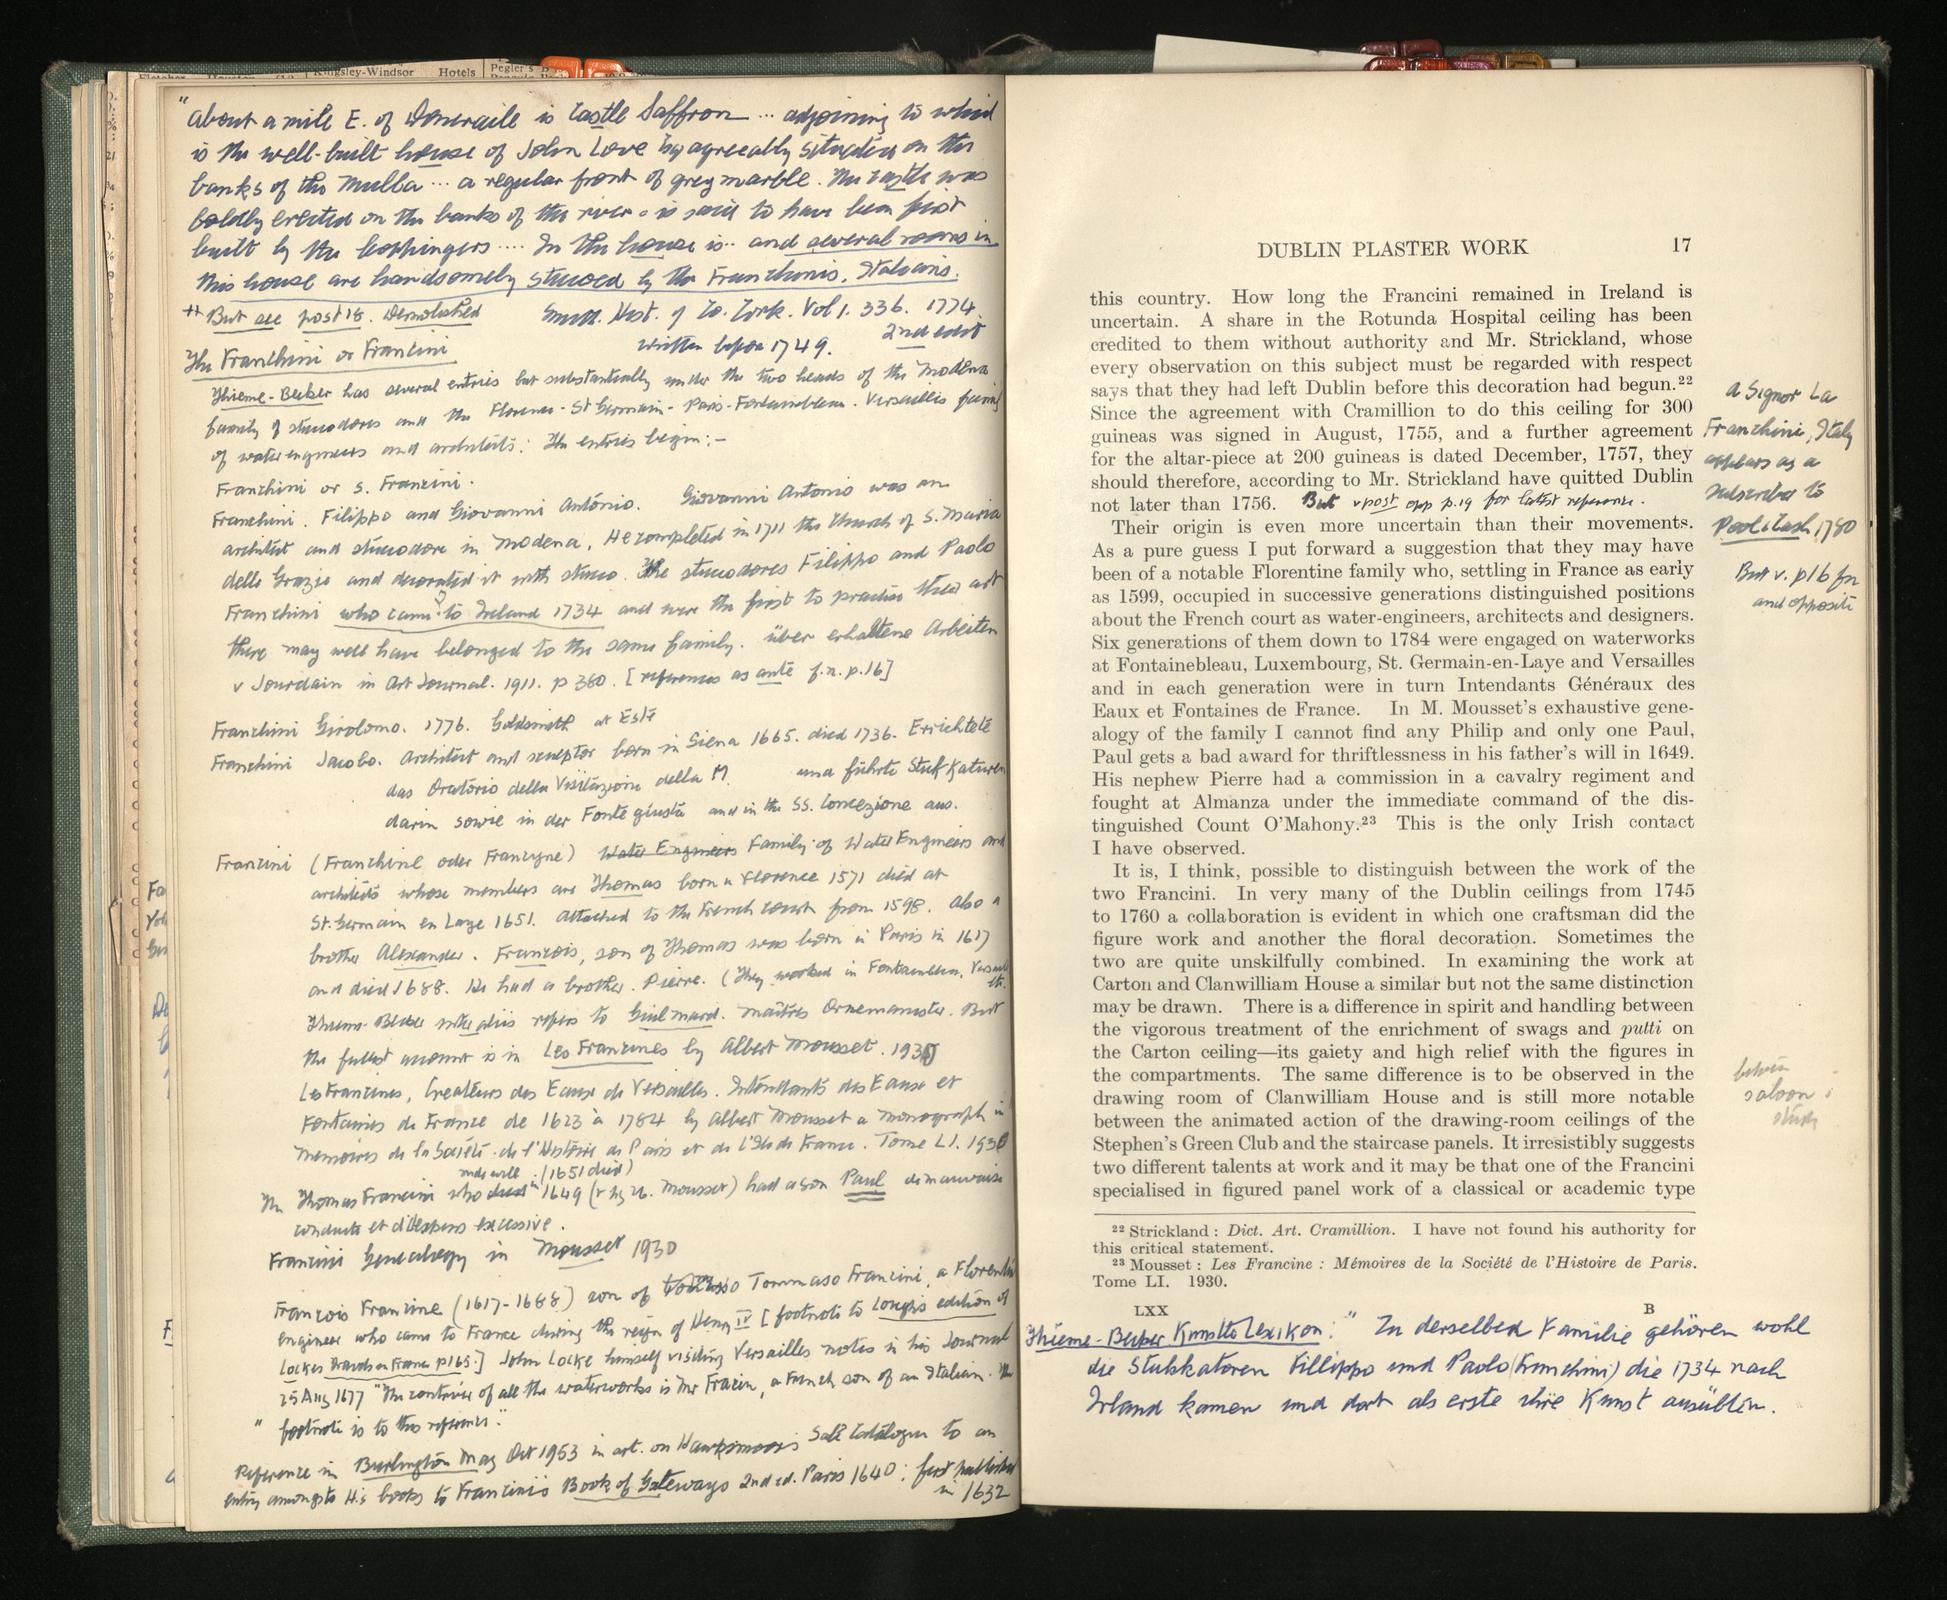 Kingsley-Windsor Hotels
Pegler's
"About a mile E. of Doneraile is Castle Saffron ... adjoining to which
is the well-built house of John Love Esq agreeably situated on the
banks of the Mulla ... a regular front of grey marble. The castle was
boldly erected on the banks of the river & is said to have been first
built by the .... In the house is .. and several rooms in
this house are handsomely stucoed by the Franchinis, Italians.
++ But see post 18. Demolished
Smith. Hist. of Co. Cork. Vol 1. 336. 1774.
2nd edit
written before 1749.
The Franchini or Francini
Thieme-Becker has several entries but substantially under the two heads of the Modena
family of stuccodores and the Florence-St Germain-Paris-Fontainebleau-Versailles family
of water engineers and architects. The entries begin:-
Franchini or s. Francini.
Franchini. Filippo and Giovanni Antonio. Giovanni Antonio was an
architect and stuccodore in Modena. He completed in 1711 the Church of S. Maria
delle Grazie and decorated it with stucco. The stuccodores Filippo and Paolo
Franchini who came to Ireland 1734 and were the first to practise their art
there may well have belonged to the same family. über erhaltene Arbeiten
v Jourdain in Art Journal. 1911. p 380. [references as ante f.n. p.16]
Franchini Girolomo. 1776. Goldsmith at Este
Franchini Jacobo. Architect and sculptor born in Siena 1665. died 1736. Errichtete
das Oratorio della Visitazione della M. und führte Stukkaturen
darin sowie in der Fontegiusta and in the SS. Concezione aus.
Francini (Franchine oder Francyne) Water Engineers Family of Water Engineers and
architects whose members are Thomas born in Florence 1571 died at
St. Germain en Laye 1651. Attached to the French court from 1598. Also a
brother Alexander. Francois, son of Thomas was born in Paris in 1617
and died 1688. He had a brother. Pierre. (They worked in Fontainbleu, Versailles
etc.
Thieme-Becker inter aliis refers to Guilmard. Maîtres Ornemanistes. But
the fullest account is in Les Francines by Albert Mousset. 1930
Les Francines, Createurs des Eaux de Versailles. Intendants des Eaux et
Fontaines de France de 1623 à 1784 by Albert Mousset a monograph in
Memoires de la Société de l'Histoire de Paris et de l'Ile de France. Tome LI. 1930
made will (1651 died)
The Thomas Francini who died in 1649 (v Mousset) had a son Paul de mauvaise
conduite et d'despens excessive.
Francini Genealogy in Mousset 1930
Francois Francine (1617-1688) son of Tommaso Francini, a Florentine
engineer who came to France during the reign of Henry IV [footnote to Lough's edition of
Lockes Travels in France p165.] John Locke himself visiting Versailles notes in his Journal
25 Aug 1677 "The contriver of all the waterworks is Mr Frazin, a French son of an Italian. The
" footnote is to this reference."
Reference in Burlington Mag Oct 1953 in art. on Hawksmoor's Sale Catalogue to an
entry amongst His books to Francini's Book of Gateways 2nd ed. Paris 1640: first published
in 1632
DUBLIN PLASTER WORK 17
this country. How long the Francini remained in Ireland is
uncertain. A share in the Rotunda Hospital ceiling has been
credited to them without authority and Mr. Strickland, whose
every observation on this subject must be regarded with respect
says that they had left Dublin before this decoration had begun.²²
Since the agreement with Cramillion to do this ceiling for 300
guineas was signed in August, 1755, and a further agreement
for the altar-piece at 200 guineas is dated December, 1757, they
should therefore, according to Mr. Strickland have quitted Dublin
not later than 1756. But v post opp p.19 for latest reference.
Their origin is even more uncertain than their movements.
As a pure guess I put forward a suggestion that they may have
been of a notable Florentine family who, settling in France as early
as 1599, occupied in successive generations distinguished positions
about the French court as water-engineers, architects and designers.
Six generations of them down to 1784 were engaged on waterworks
at Fontainebleau, Luxembourg, St. Germain-en-Laye and Versailles
and in each generation were in turn Intendants Généraux des
Eaux et Fontaines de France. In M. Mousset's exhaustive gene-
alogy of the family I cannot find any Philip and only one Paul,
Paul gets a bad award for thriftlessness in his father's will in 1649.
His nephew Pierre had a commission in a cavalry regiment and
fought at Almanza under the immediate command of the dis-
tinguished Count O'Mahony.²³ This is the only Irish contact
I have observed.
It is, I think, possible to distinguish between the work of the
two Francini. In very many of the Dublin ceilings from 1745
to 1760 a collaboration is evident in which one craftsman did the
figure work and another the floral decoration. Sometimes the
two are quite unskilfully combined. In examining the work at
Carton and Clanwilliam House a similar but not the same distinction
may be drawn. There is a difference in spirit and handling between
the vigorous treatment of the enrichment of swags and putti on
the Carton ceiling—its gaiety and high relief with the figures in
the compartments. The same difference is to be observed in the
drawing room of Clanwilliam House and is still more notable
between the animated action of the drawing-room ceilings of the
Stephen's Green Club and the staircase panels. It irresistibly suggests
two different talents at work and it may be that one of the Francini
specialised in figured panel work of a classical or academic type
²² Strickland : Dict. Art. Cramillion. I have not found his authority for
this critical statement.
²³ Mousset : Les Francine : Mémoires de la Société de l'Histoire de Paris.
Tome LI. 1930.
LXX B
Thieme-Becker Kunstlexikon: " Zu derselben Familie gehören wohl
die Stukkatoren Fillippo und Paolo (Franchini) die 1734 nach
Irland kamen und dort als erste ihre Kunst ausübten.
a Signor La
Franchini, Italy
appears as a
subscriber to
Pool & Cash 1780
But v. p16 fn
and opposite
saloon